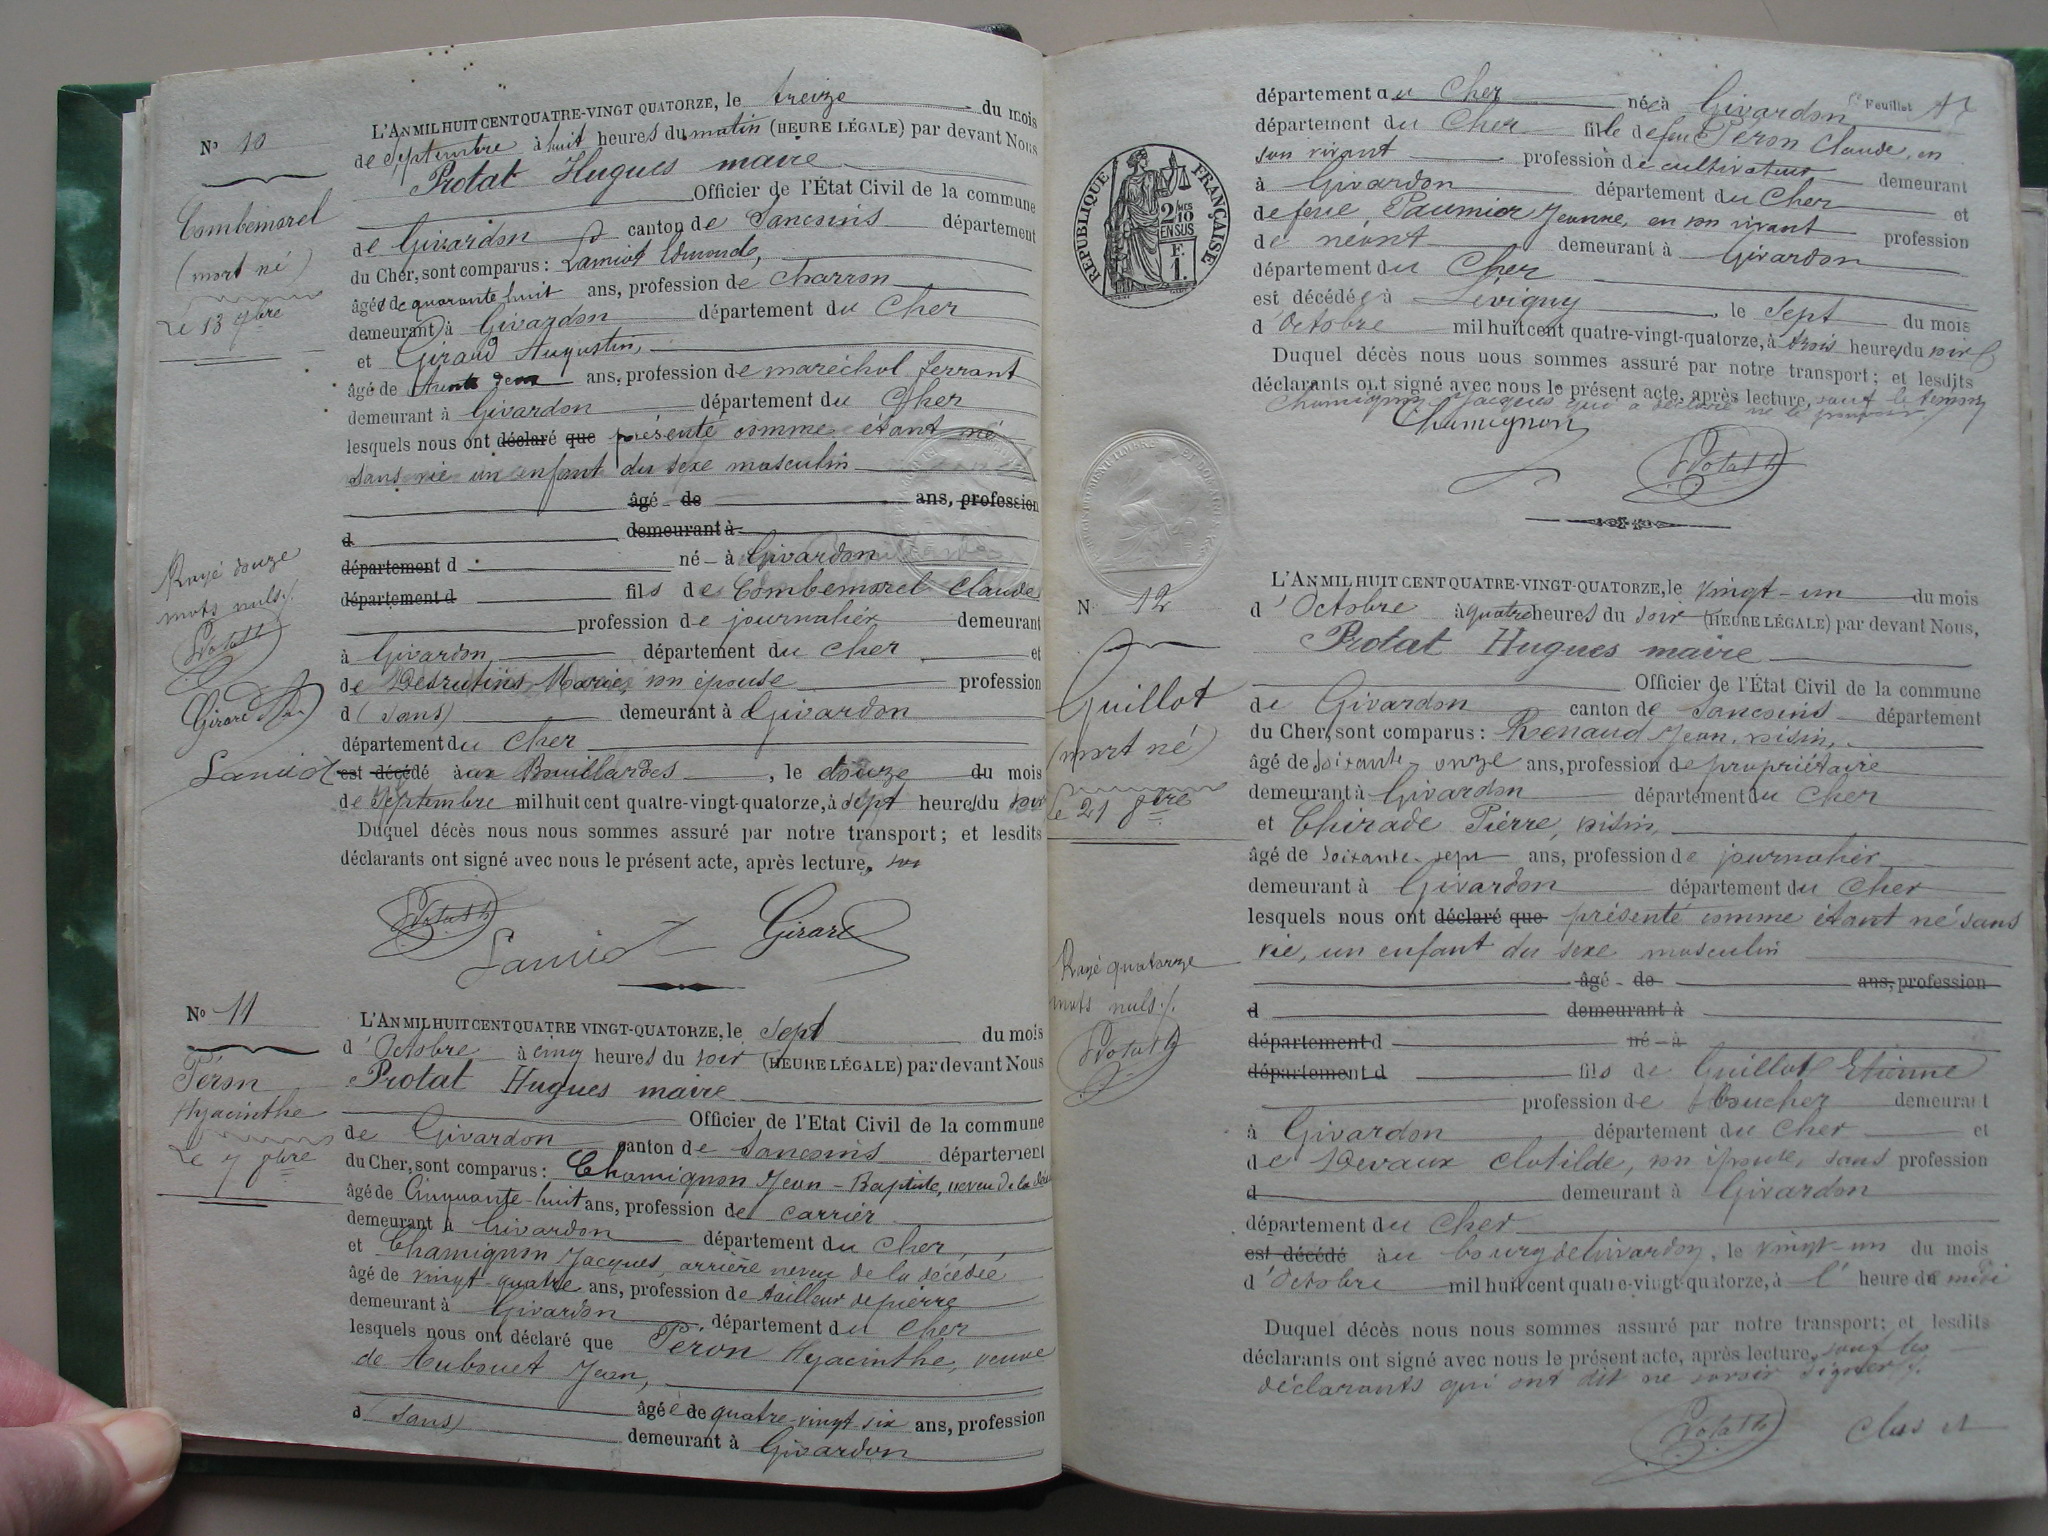 L'AN MIL HUIT CENT QUATRE-VINGT QUATORZE, le treize du mois
Nº 10
de Septembre à huit heures du matin (HEURE LÉGALE) par devant Nous
Protat Hugues maire
Officier de l'État Civil de la commune
Combemorel
(mort né)
Le 13 7bre
de Givardon canton de Sancoins département
du Cher, sont comparus : Lamiot Edmond,
âgés de quarante huit ans, profession de Charron
demeurant à Givardon département du Cher
et Giraud Augustin,
âgé de trente deux ans, profession de maréchal ferrant
demeurant à Givardon département du Cher
lesquels nous ont déclaré que présenté comme étant né
sans vie un enfant du sexe masculin
âgé de ans, profession
d demeurant à
département d né à Givardon
département d fils de Combemorel Claude
profession de journalier demeurant
à Givardon département du Cher et
de Desrutins Marie, son épouse profession
d (sans) demeurant à Givardon
département du Cher
est décédé aux Bouillardes, le douze du mois
de Septembre mil huit cent quatre-vingt-quatorze, à sept heures du soir
Duquel décès nous nous sommes assuré par notre transport ; et lesdits
déclarants ont signé avec nous le présent acte, après lecture,
Rayé douze
mots nuls
Protat h
Girard
Lamiot
Protat h
Lamiot
Girard
Nº 11
Péron
Hyacinthe
Le 7 8bre
L'AN MIL HUIT CENT QUATRE VINGT-QUATORZE, le sept du mois
d'Octobre à cinq heures du soir (HEURE LÉGALE) par devant Nous
Protat Hugues maire
Officier de l'Etat Civil de la commune
de Givardon canton de Sancoins département
du Cher, sont comparus : Chamignon Jean-Baptiste, neveu de la
âgé de Cinquante-huit ans, profession de carrier
demeurant à Givardon département du Cher,
et Chamignon Jacques, arrière neveu de la décédée
âgé de vingt-quatre ans, profession de tailleur de pierre
demeurant à Givardon, département du Cher
lesquels nous ont déclaré que Péron Hyacinthe, veuve
de Aubouet Jean,
âgée de quatre-vingt six ans, profession
d (sans) demeurant à Givardon
Feuillet
département du Cher née à Givardon
département du Cher fille de feu Péron Claude, en
son vivant profession de cultivateur demeurant
à Givardon département du Cher et
de feue Paumier Jeanne, en son vivant profession
de néant demeurant à Givardon
département du Cher
est décédée à Lévigny, le sept du mois
d'Octobre mil huit cent quatre-vingt-quatorze, à trois heures du soir
Duquel décès nous nous sommes assuré par notre transport ; et lesdits
déclarants ont signé avec nous le présent acte, après lecture, sauf le témoin
Chamignon Jacques qui a déclaré ne le pouvoir
Chamignon
Protat h
RÉPUBLIQUE FRANÇAISE
2/10 EN SUS
F. 1.
N 12
Guillot
(mort né)
Le 21 8bre
L'AN MIL HUIT CENT QUATRE-VINGT-QUATORZE, le vingt-un du mois
d'Octobre à quatre heures du soir (HEURE LÉGALE) par devant Nous,
Protat Hugues maire
Officier de l'État Civil de la commune
de Givardon canton de Sancoins département
du Cher, sont comparus : Renaud Jean, voisin,
âgé de soixante-onze ans, profession de propriétaire
demeurant à Givardon département du Cher
et Chirade Pierre, voisin,
âgé de soixante-sept ans, profession de journalier
demeurant à Givardon département du Cher
lesquels nous ont déclaré que présenté comme étant né sans
vie, un enfant du sexe masculin
âgé de ans, profession
d demeurant à
département d né à
département d fils de Guillot Etienne
profession de Boucher demeurant
à Givardon département du Cher et
de Devaux Clotilde, son épouse, sans profession
d demeurant à Givardon
département du Cher
est décédé au bourg de Givardon, le vingt-un du mois
d'Octobre mil huit cent quatre-vingt-quatorze, à l' heure de midi
Duquel décès nous nous sommes assuré par notre transport ; et lesdits
déclarants ont signé avec nous le présent acte, après lecture, sauf les
déclarants qui ont dit ne savoir signer
Rayé quatorze
mots nuls
Protat h
Protat h
Clos et